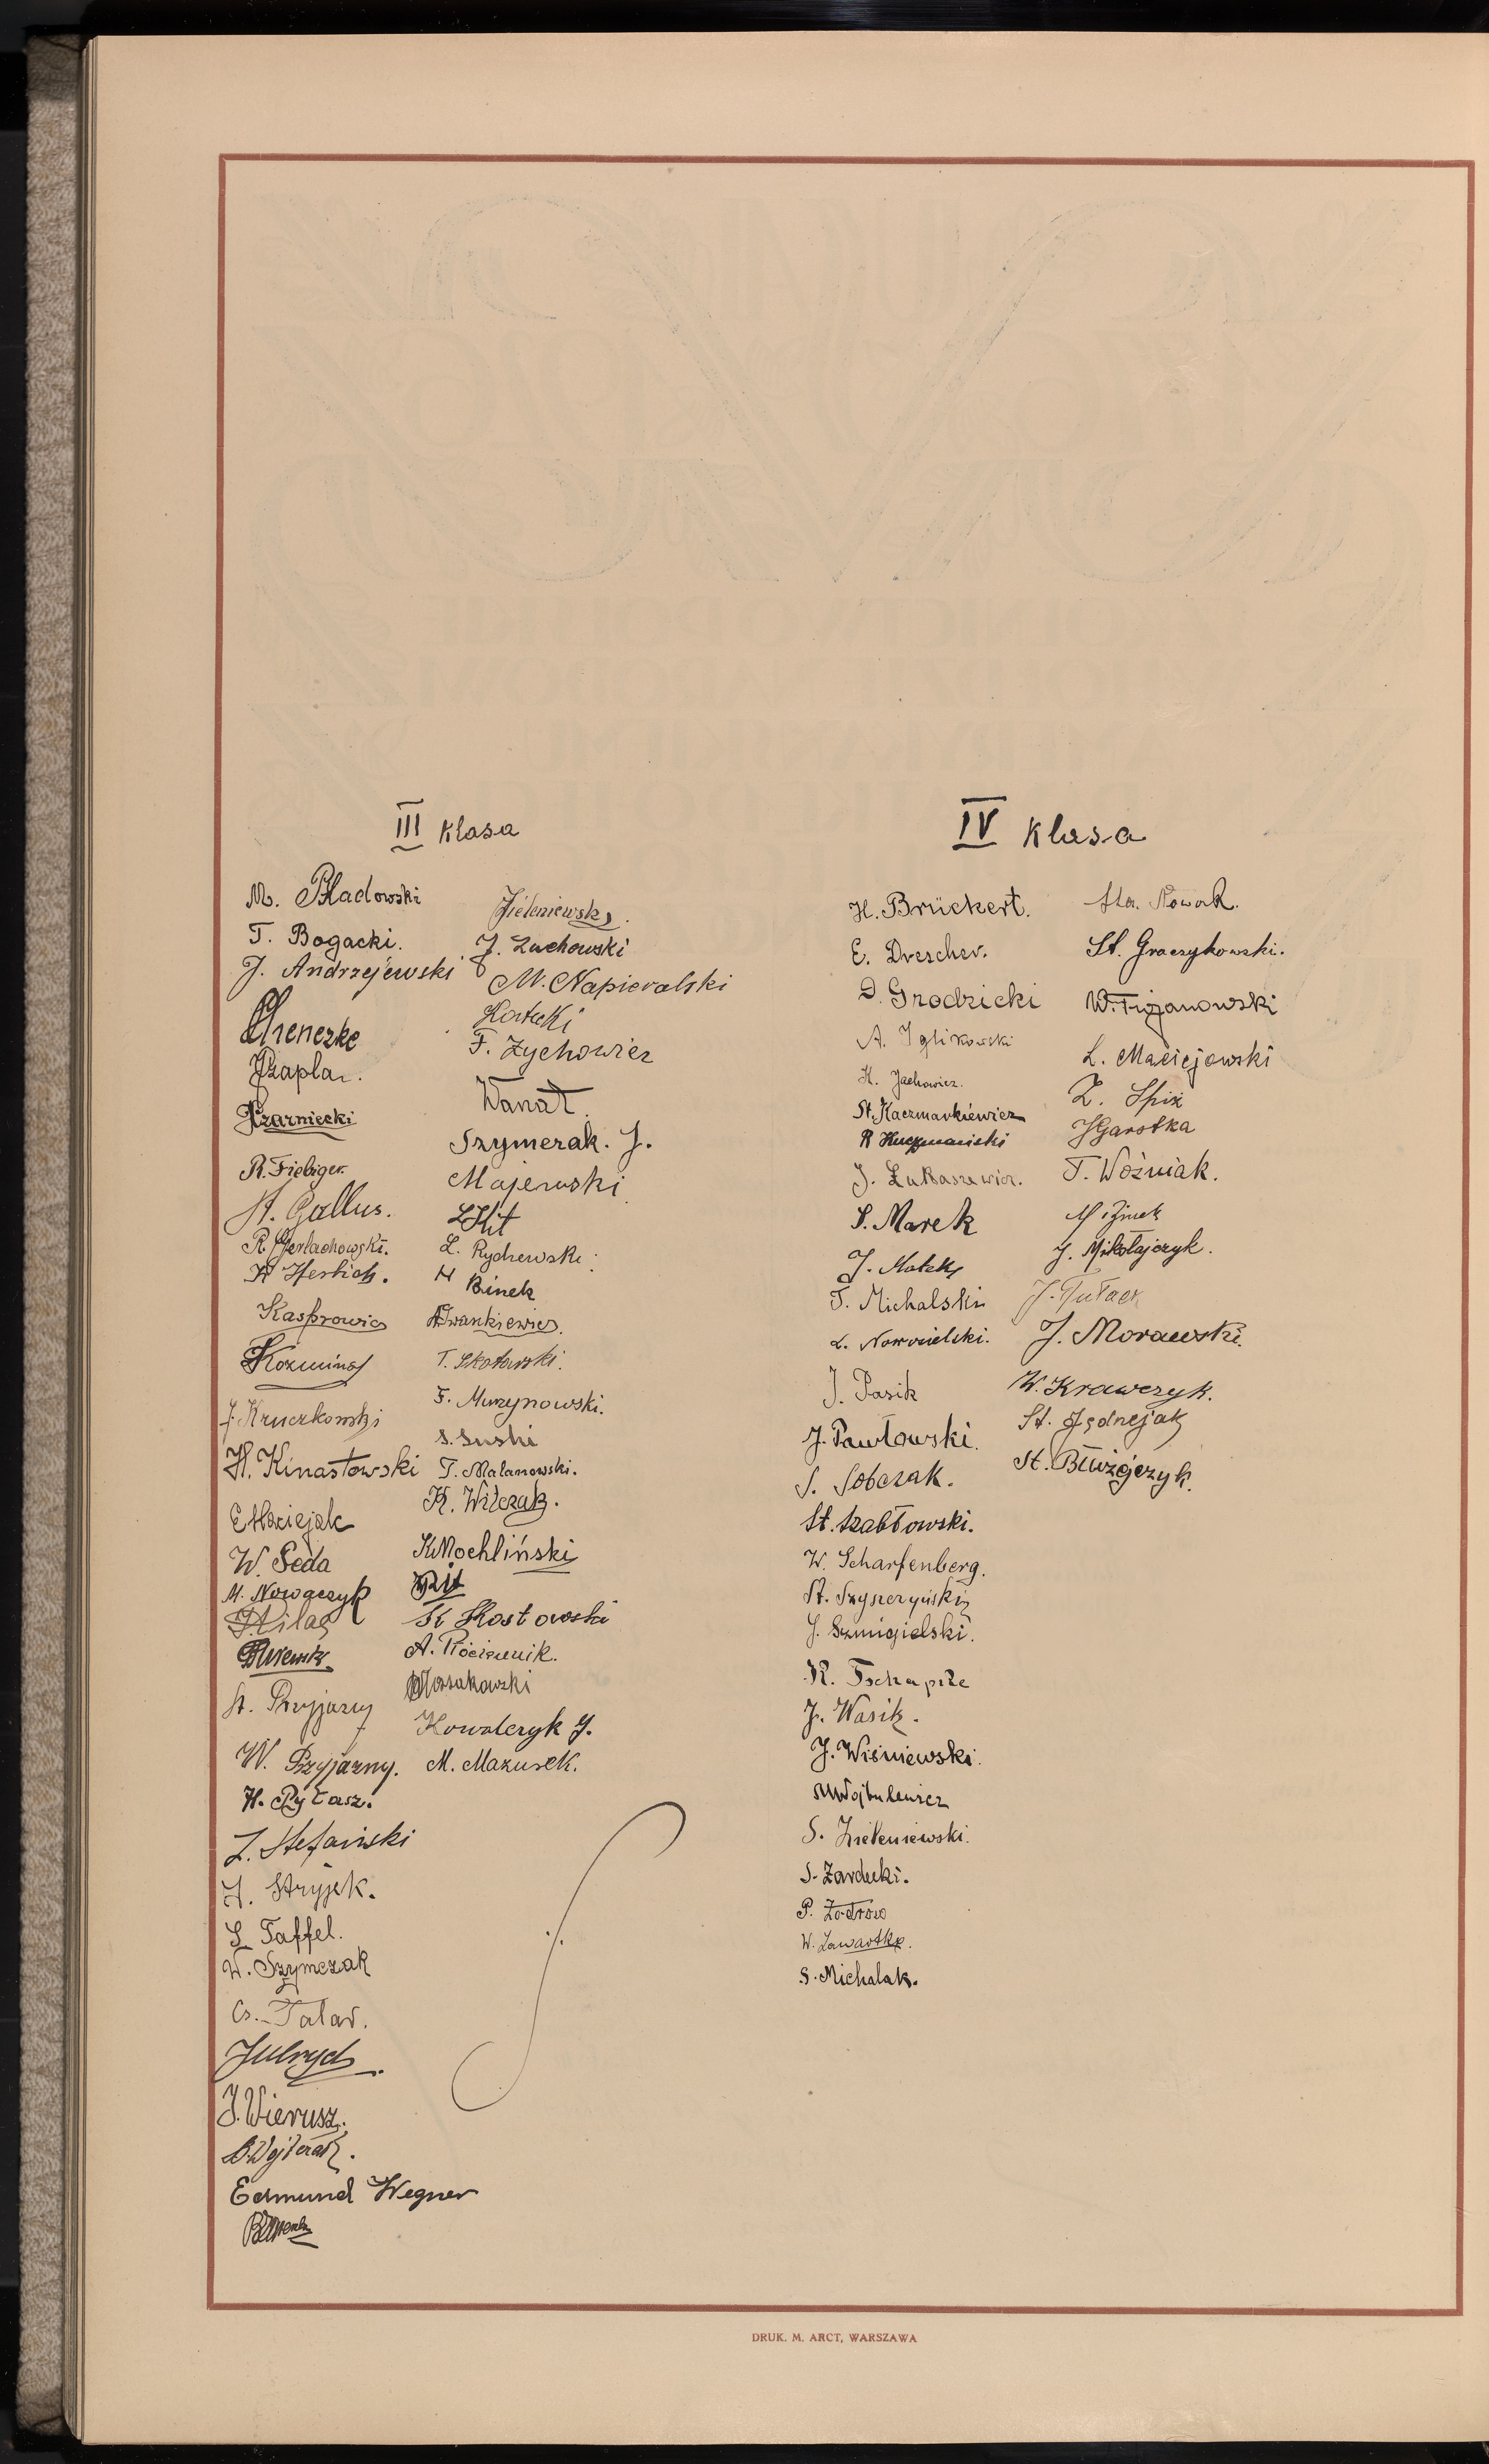 III klasa
M. Pładowski
T. Bogacki.
J. Andrzejewski
Chenczke
Czapla.
Czarniecki
R. Fiebiger
St. Gallus.
R. Gerlachowski.
Herbich.
Kasprowicz
Koźminał
J. Kruczkowski
H. Kinastowski
E. Maciejak
W. Peda
M. Nowaczyk
St. Przyjazny
W. Przyjazny.
H. Pytasz.
Z. Stefański
J. Stryjek.
S. Taffel.
W. Szymczak
Cz. Talar.
J. Wierusz.
B. Wojtczak.
Edmund Wegner
Zieleniewski.
J. Żuchowski
M. Napieralski
F. Zychowicz
Wanat.
Szymczak. J.
Majewski
Z. Rydzewski.
H Binek
Iwankiewicz.
T. Skotarski.
F. Murzynowski.
S. Suski
T. Malanowski.
K. Witczak.
K. Mochliński
K Kostowski
A. Płóciennik.
Mossakowski
Kowalczyk J.
M. Mazurek.
IV klasa
H. Brückert.
E. Drescher.
D. Grodzicki
A. Iglikowski
H. Jachowicz.
St. Kaczmarkiewicz
R Kuczmański
J. Łukaszewicz.
S. Marek
J. Matek
T. Michalski
L. Nowosielski.
J. Pasik
J. Pawłowski.
S. Sobczak.
St. Szabłowski.
W. Scharfenberg.
St. Szyszczyński
J. Szmigielski.
R. Tschapke
J. Wasik.
J. Wiśniewski.
S. Zieleniewski.
S. Zardecki.
P. Zodrow
W. Zawartka.
S. Michalak.
Sta. Nowak.
St. Graczykowski.
W. Trojanowski
L. Maciejowski
Z. Spix
J Garstka
T. Woźniak.
J. Mikołajczyk.
J. Tułacz
J. Morawski.
W. Krawczyk.
St. Jędrzejak
DRUK. M. ARCT, WARSZAWA